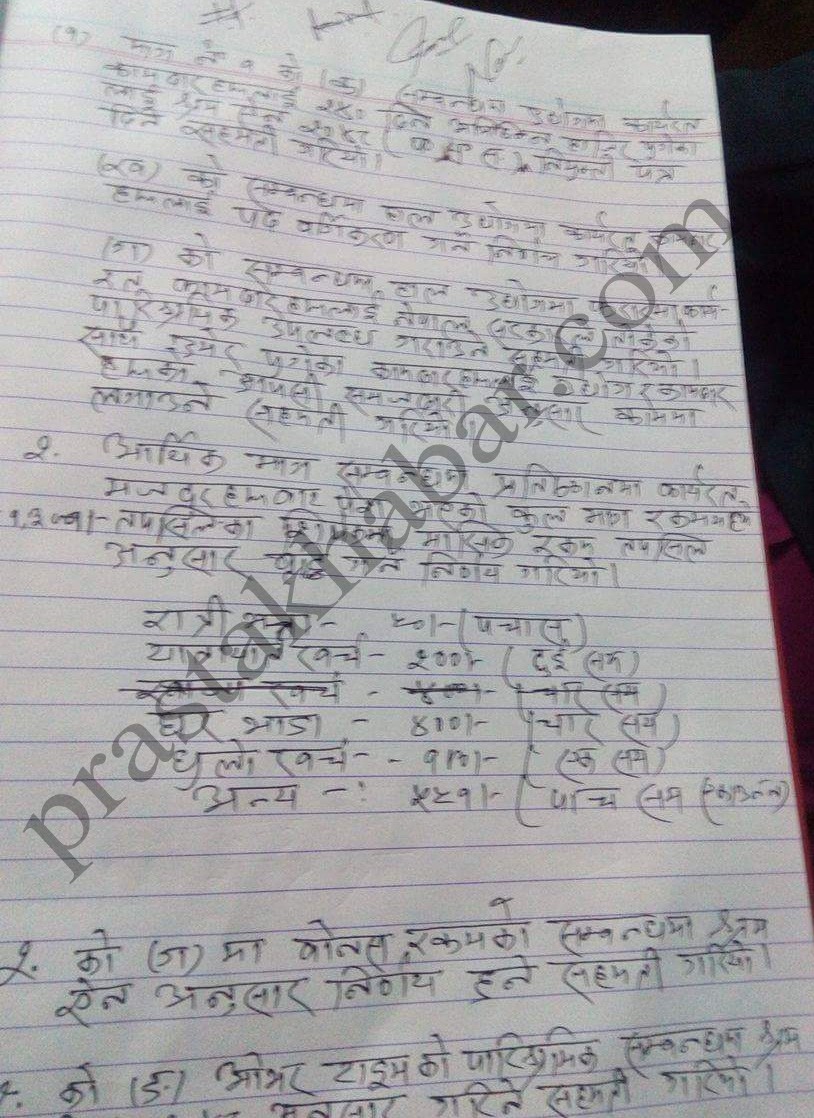 (१) माग नं १ को (क) सम्बन्धमा उद्योगमा कार्यरत
कामदारहरूलाई २४० दिन अविछिन्न हाजिर पुगेका
लाई श्रम ऐन २०४८ नियुक्ती पत्र
दिने सहमती गरियो।
(ख) को सम्बन्धमा हाल उद्योगमा कार्यरत कामदार
हरूलाई पद वर्गिकरण गर्ने निर्णय गरियो।
(ग) को सम्बन्धमा हाल उद्योगमा करारमा कार्य-
रत कामदारहरूलाई नेपाल सरकारले तोकेको
पारिश्रमिक उपलब्ध गराउने सहमती गरियो।
साथै उमेर पुगेका कामदारहरूलाई उद्योग र कामदार
हरूको आपसी समझदारी अनुसार काममा
लगाउने सहमती गरियो।
२. आर्थिक माग सम्बन्धमा प्रतिष्ठानमा कार्यरत
मजदूरहरूबाट पेश भएको कुल माग रकम मध्ये
तपसिलका मासिक रकम तपसिल
अनुसार वृद्धि गर्ने निर्णय गरियो।
रात्री भत्ता - ५०।- (पचास)
यातायात खर्च - २००।- (दुई सय)
खर्च - ४००।- (चार सय)
घर भाडा - ४००।- (चार सय)
धुलो खर्च - - १००।- (एक सय)
अन्य -: ५५१।- (पाँच सय एकाउन्न)
२. को (ज) मा बोनस रकमको सम्बन्धमा श्रम
ऐन अनुसार निर्णय हुने सहमती गरियो।
को (ङ) ओभर टाइमको पारिश्रमिक सम्बन्धमा श्रम
अनुसार गरिने सहमती गरियो।
prastakhabar.com